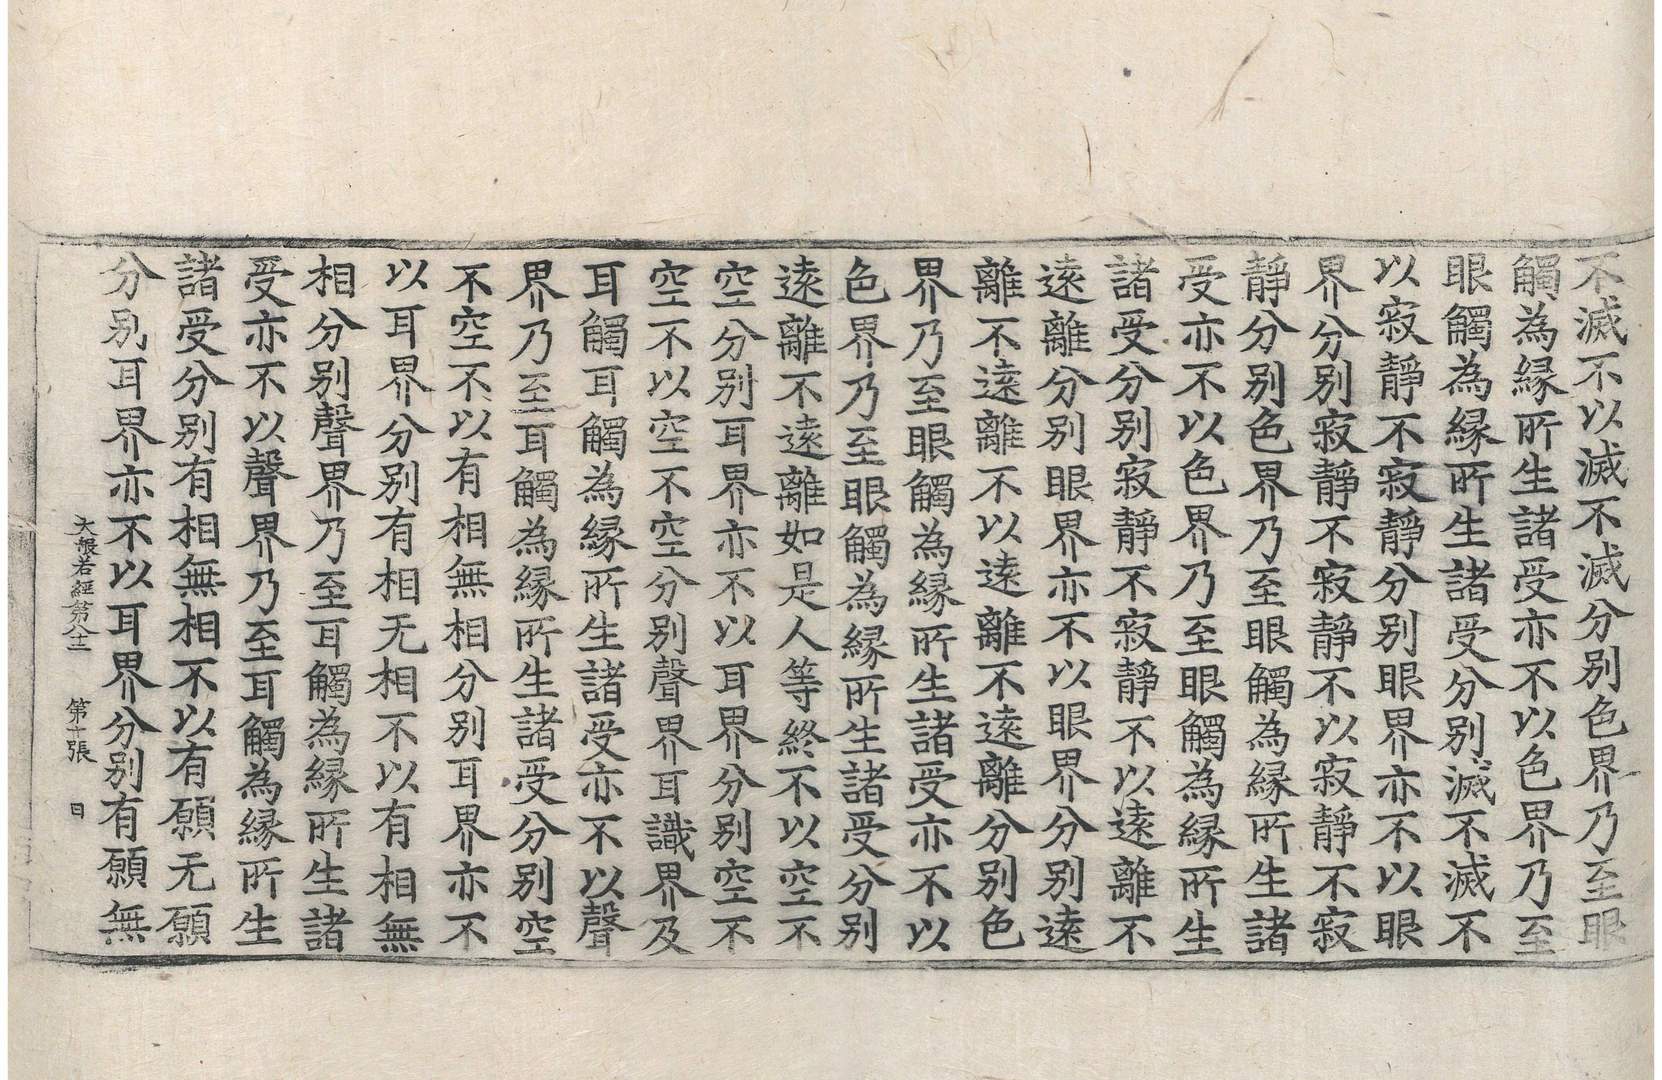 不滅不以滅不滅分別色界乃至眼
觸為縁所生諸受亦不以色界乃至
眼觸為縁所生諸受分別滅不滅不
以寂靜不寂靜分別眼界亦不以眼
界分別寂靜不寂靜不以寂靜不寂
靜分別色界乃至眼觸為縁所生諸
受亦不以色界乃至眼觸為縁所生
諸受分別寂靜不寂靜不以遠離不
遠離分別眼界亦不以眼界分別遠
離不遠離不以遠離不遠離分別色
界乃至眼觸為縁所生諸受亦不以
色界乃至眼觸為縁所生諸受分別
遠離不遠離如是人等終不以空不
空分別耳界亦不以耳界分別空不
空不以空不空分別聲界耳識界及
耳觸耳觸為縁所生諸受亦不以聲
界乃至耳觸為縁所生諸受分別空
不空不以有相無相分別耳界亦不
以耳界分別有相无相不以有相無
相分別聲界乃至耳觸為縁所生諸
受亦不以聲界乃至耳觸為縁所生
諸受分別有相無相不以有願无願
分別耳界亦不以耳界分別有願無
大般若經第八十二 第十張 日